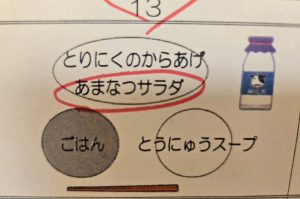 13
とりにくのからあげ
あまなつサラダ
ごはん
とうにゅうスープ